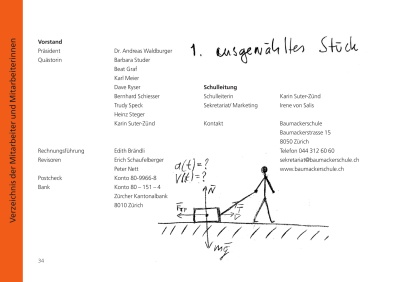 Verzeichnis der Mitarbeiter und Mitarbeiterinnen
Vorstand
Präsident Dr. Andreas Waldburger
Quästorin Barbara Studer
Beat Graf
Karl Meier
Dave Ryser
Bernhard Schiesser
Trudy Speck
Heinz Steger
Karin Suter-Zünd
Rechnungsführung Edith Brändli
Revisoren Erich Schaufelberger
Peter Nett
Postcheck Konto 80-9966-8
Bank Konto 80 – 151 – 4
Zürcher Kantonalbank
8010 Zürich
1. ausgewähltes Stück
Schulleitung
Schulleiterin Karin Suter-Zünd
Sekretariat/ Marketing Irene von Salis
Kontakt Baumackerschule
Baumackerstrasse 15
8050 Zürich
Telefon 044 312 60 60
sekretariat@baumackerschule.ch
www.baumackerschule.ch
a(t)=?
v(t)=?
N
F
mg
34